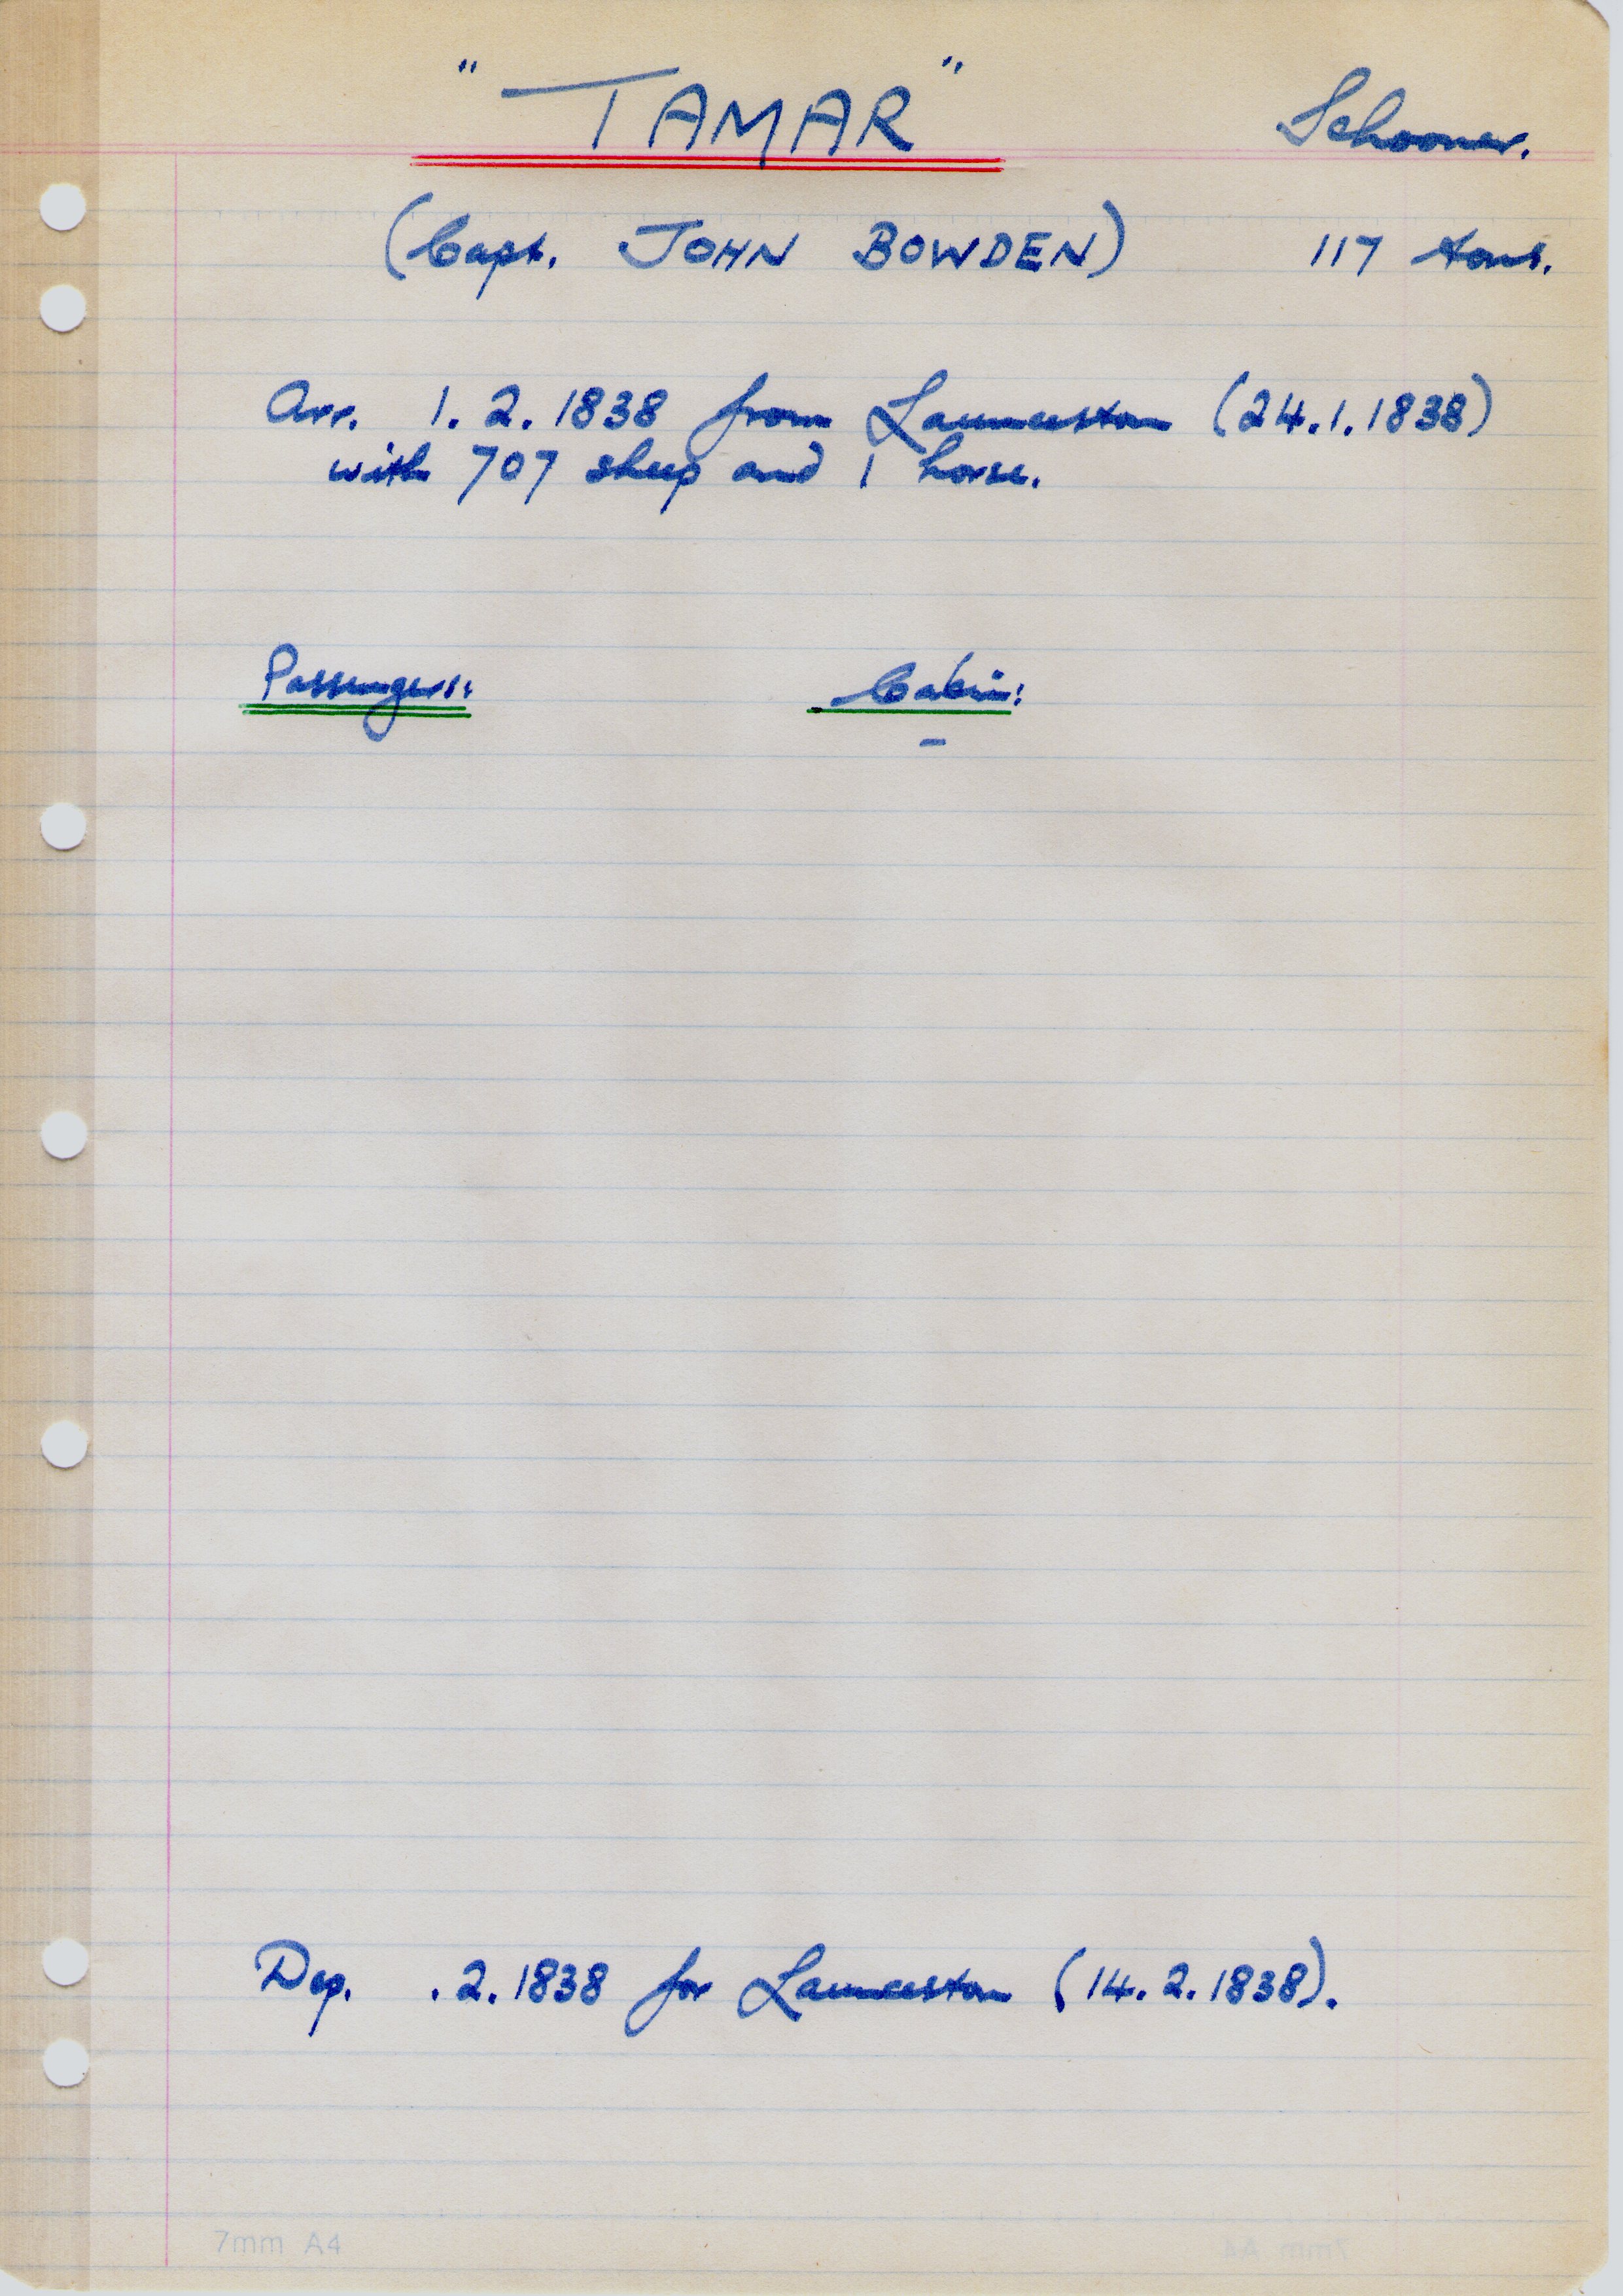 "TAMAR"
Schooner.
(Capt. JOHN BOWDEN)
117 tons.
Arr. 1.2.1838 from Launceston (24.1.1838)
with 707 sheep and 1 horse.
Passengers:
Cabin:
-
Dep. .2.1838 for Launceston (14.2.1838).
7mm A4
7mm A4